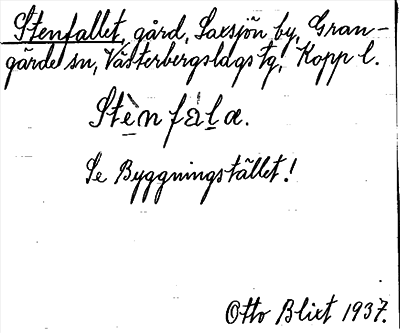 Stenfallet, gård, Saxsjön by, Gran-
gärde sn, Västerbergslags tg, Kopp l.
Stènfàla.
Se Byggningstället!
Otto Blixt 1937.